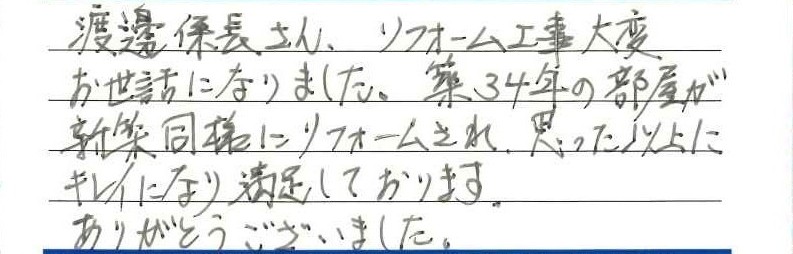 渡邊係長さん、リフォーム工事大変
お世話になりました。築34年の部屋が
新築同様にリフォームされ、思った以上に
キレイになり満足しております。
ありがとうございました。